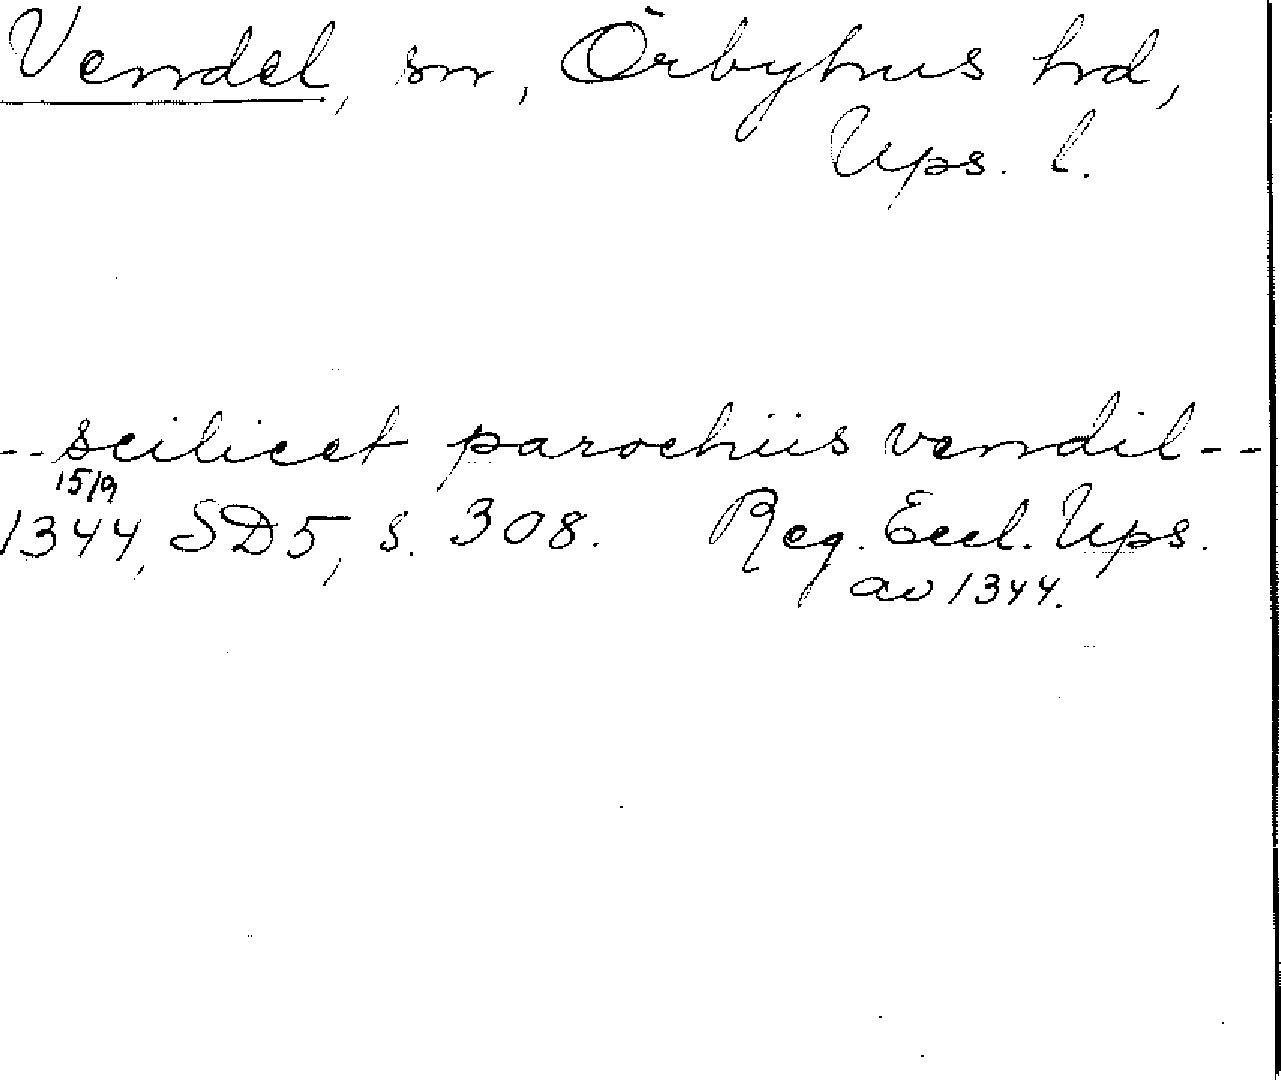 Vendel, sn, Örbyhus hd,
Ups. l.
-- scilicet parochiis vendil --
15/9
1344, SD5, s. 308. Reg. Eccl. Ups.
av 1344.